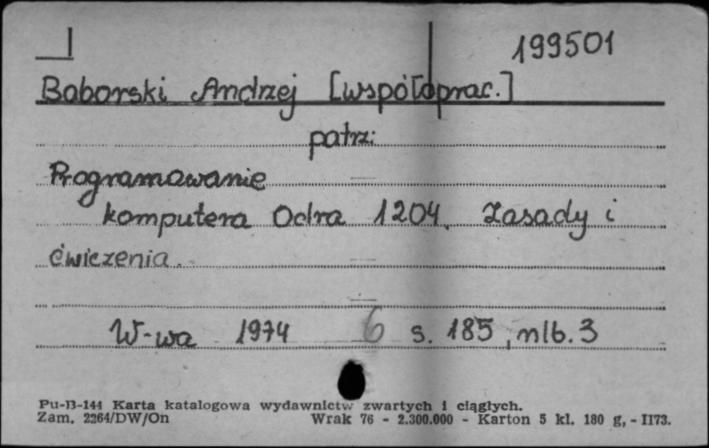 199501
Baborski Andrzej [współoprac.]
patrz:
Programowanie
komputera Odra 1204. Zasady i
ćwiczenia.
W-wa 1974 6 s. 185, nlb. 3
Pu-B-144 Karta katalogowa wydawnictw zwartych i ciągłych.
Zam. 2264/DW/On Wrak 76 - 2.300.000 - Karton 5 kl. 180 g, - II73.